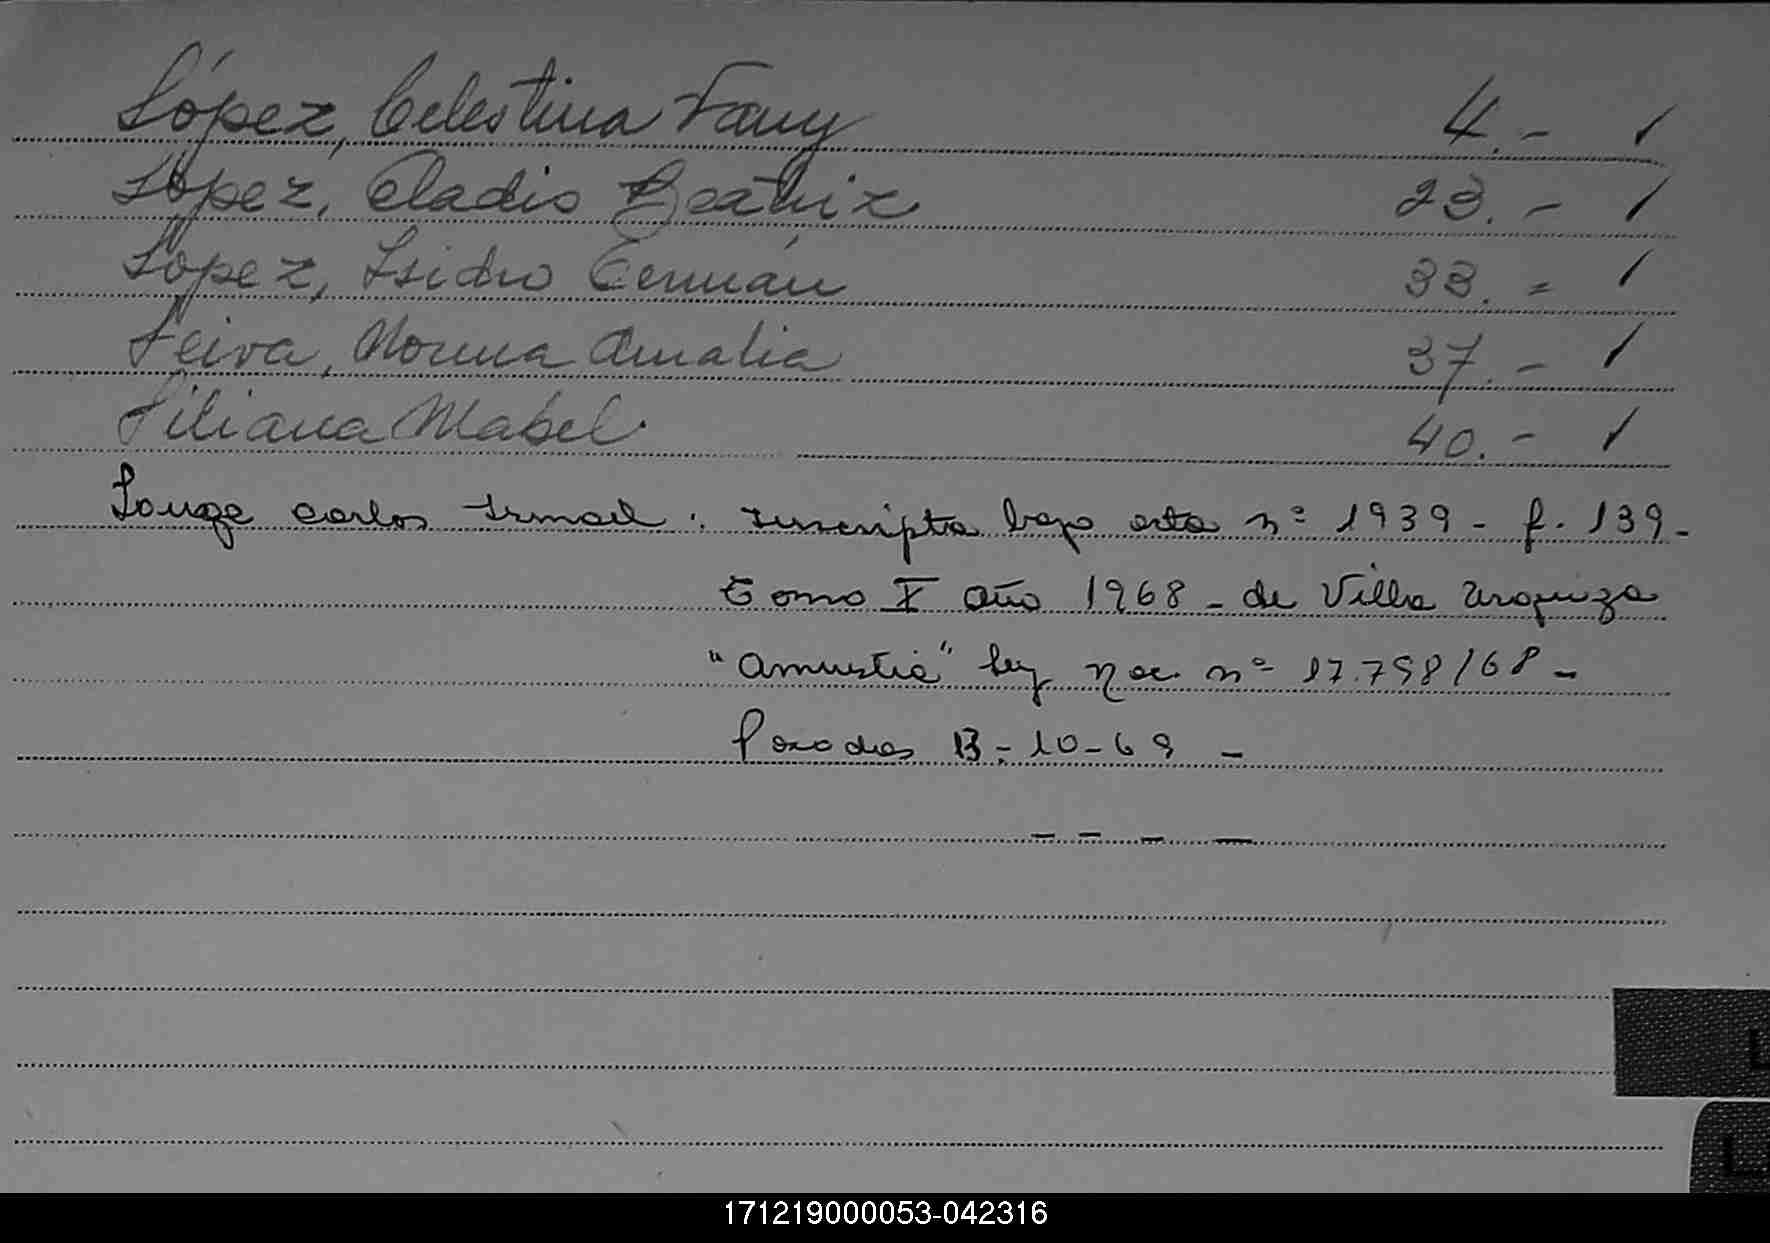 López, Celestina Fany 4.- 1
López, Eladio Beatriz 23.- 1
López, Isidro Germán 33.= 1
Leiva, Norma Amalia 37.- 1
Liliana Mabel. 40.- 1
Carlos Ismael: inscripta bajo acta nº 1939 - f. 139-
Tomo X año 1968 - de Villa Urquiza
"Amnistia" ley nac. nº 17.798/68 -
Posadas 13-10-69 -
- - - -
171219000053-042316